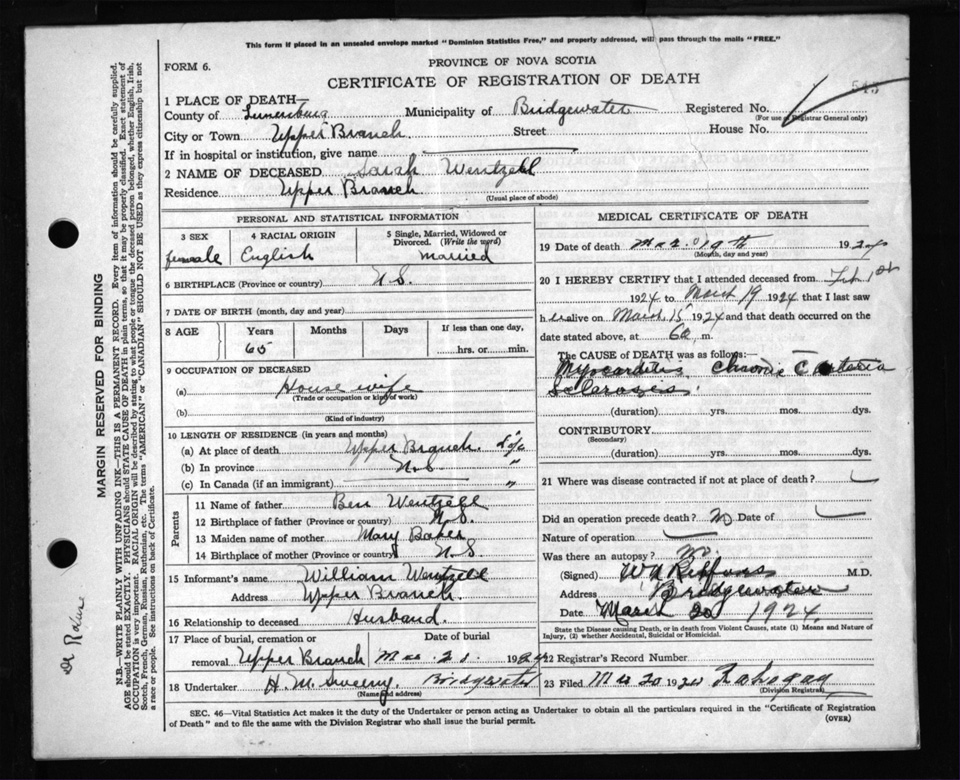 This form if placed in an unsealed envelope marked "Dominion Statistics Free," and properly addressed, will pass through the mails "FREE."
FORM 6.
PROVINCE OF NOVA SCOTIA
CERTIFICATE OF REGISTRATION OF DEATH
1 PLACE OF DEATH—
County of Lunenburg Municipality of Bridgewater Registered No.
(For use of Registrar General only)
City or Town Upper Branch Street House No.
If in hospital or institution, give name
2 NAME OF DECEASED Sarah Wentzell
Residence Upper Branch
(Usual place of abode)
PERSONAL AND STATISTICAL INFORMATION
3 SEX 4 RACIAL ORIGIN 5 Single, Married, Widowed or Divorced. (Write the word)
female English Married
6 BIRTHPLACE (Province or country) N.S.
7 DATE OF BIRTH (month, day and year)
8 AGE Years Months Days If less than one day,
65 hrs. or min.
9 OCCUPATION OF DECEASED
(a) House wife
(Trade or occupation or kind of work)
(b)
(Kind of industry)
10 LENGTH OF RESIDENCE (in years and months)
(a) At place of death Upper Branch. Life
(b) In province N.S. "
(c) In Canada (if an immigrant) "
Parents
11 Name of father Ben Wentzell
12 Birthplace of father (Province or country) N.S.
13 Maiden name of mother Mary Baker
14 Birthplace of mother (Province or country) N.S.
15 Informant's name William Wentzell
Address Upper Branch.
16 Relationship to deceased Husband.
17 Place of burial, cremation or removal Upper Branch Date of burial Mar. 21. 1924
18 Undertaker H. M. Sweeny. Bridgewater
(Name and address)
MEDICAL CERTIFICATE OF DEATH
19 Date of death Mar. 19th 1924
(Month, day and year)
20 I HEREBY CERTIFY that I attended deceased from Feb 1st
1924 to March 19 1924 that I last saw
her alive on March 15 1924 and that death occurred on the
date stated above, at 6 a. m.
The CAUSE of DEATH was as follows:
Myocarditis Chronic
(duration) yrs. mos. dys.
CONTRIBUTORY
(Secondary)
(duration) yrs. mos. dys.
21 Where was disease contracted if not at place of death?
Did an operation precede death? No Date of
Nature of operation
Was there an autopsy? No.
(Signed) M.D.
Address Bridgewater
Date March 20 1924.
State the Disease causing Death, or in death from Violent Causes, state (1) Means and Nature of Injury, (2) whether Accidental, Suicidal or Homicidal.
22 Registrar's Record Number
23 Filed Mar 20 1924
(Division Registrar)
SEC. 46—Vital Statistics Act makes it the duty of the Undertaker or person acting as Undertaker to obtain all the particulars required in the "Certificate of Registration
of Death" and to file the same with the Division Registrar who shall issue the burial permit.
(OVER)
MARGIN RESERVED FOR BINDING
N.B.—WRITE PLAINLY WITH UNFADING INK—THIS IS A PERMANENT RECORD. Every item of information should be carefully supplied.
AGE should be stated EXACTLY. PHYSICIANS should STATE CAUSE OF DEATH in plain terms, so that it may be properly classified. Exact statement of
OCCUPATION is very important. RACIAL ORIGIN will be described by stating to what people or tongue the deceased person belonged, whether English, Irish,
Scotch, French, German, Russian, Ruthenian, etc. The terms "AMERICAN" or "CANADIAN" SHOULD NOT BE USED as they express citizenship but not
a race or people. See instructions on back of Certificate.